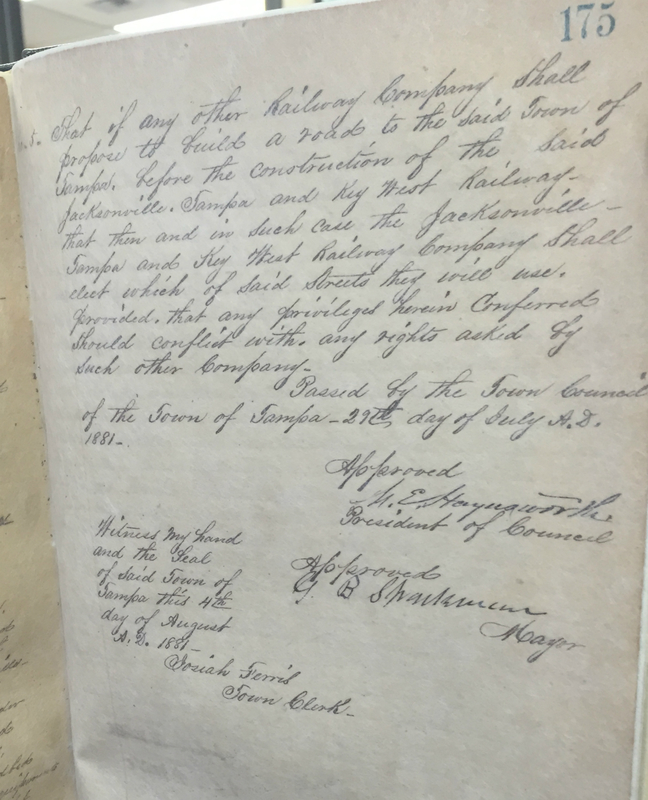 175
5. That if any other Railway Company Shall
propose to build a road to the said Town of
Tampa. before the construction of the said
Jacksonville. Tampa and Key West Railway-
that then and in such case the Jacksonville-
Tampa and Key West Railway Company Shall
elect which of said Streets they will use.
provided. that any privileges herein Conferred
Should conflict with. any rights asked by
Such other Company-
Passed by the Town Council
of the Town of Tampa - 29th day of July A.D.
1881-
Approved
H. E. Haynsworth.
President of Council
Approved
G B Sparkman
Mayor
Witness my hand
and the Seal
of Said Town of
Tampa this 4th
day of August
A.D. 1881-
Josiah Ferris
Town Clerk-